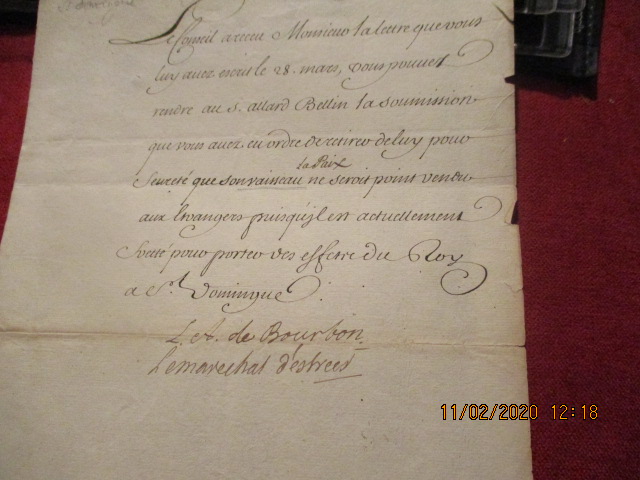 Le Conseil a receu Monsieur la lettre que vous
luy avez escrit le 28. mars, vous pouvez
rendre au S. allard Bellin la soumission
que vous avez eu ordre de retirer de luy pour
la Paix
seureté que son vaisseau ne seroit point vendu
aux Etrangers puisqu'il est actuellement
freté pour porter des effets du Roy
a St. Domingue
L. A. de Bourbon
Le marechal d'estrees
11/02/2020 12:18